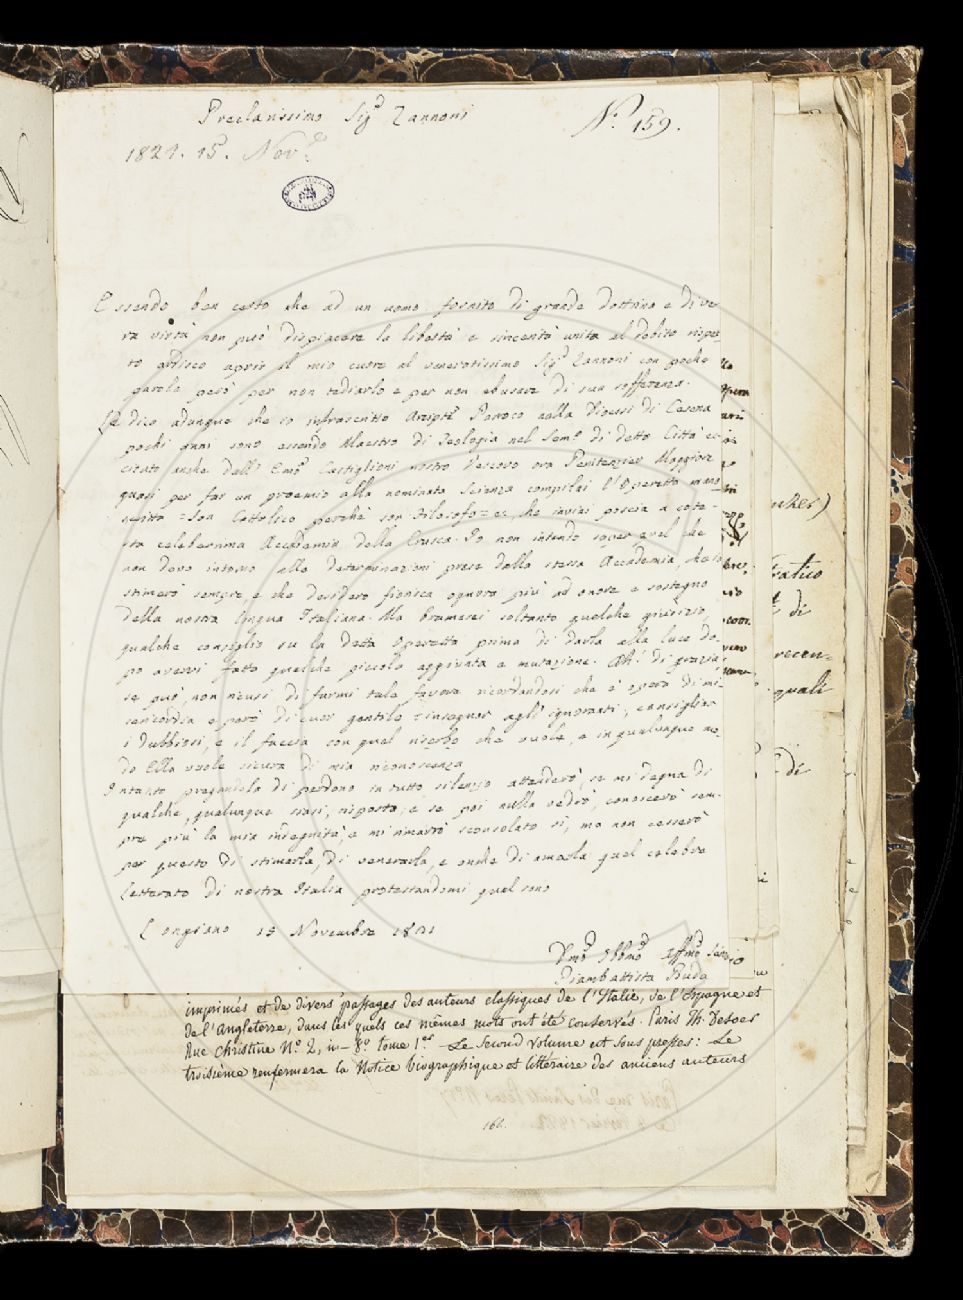 Preclarissimo Sig.r Zannoni
N.° 159.
1821. 15. Nov.e
Essendo ben certo che ad un uomo fornito di grande dottrina e di ve-
ra virtù non può dispiacere la libertà e sincerità unita al debito rispet-
to ardisco aprir il mio cuore al veneratissimo Sig.r Zannoni con poche
parole però per non tediarlo e per non abusare di sua sofferenza.
Le dico adunque che io infrascritto Arcipte Parroco nella Diocesi di Cesena
pochi anni sono essendo Maestro di Teologia nel Sem.o di detta Città ec-
citato anche dall' Emo Castiglioni nostro Vescovo ora Penitenzier Maggiore
quasi per far un proemio alla nominata Scienza compilai l'Operetta mano-
scritta = Son Cattolico perchè son Filosofo = e che inviai poscia a cote-
sta celeberrima Accademia della Crusca. Io non intendo saper quel che
non devo intorno alle determinazioni prese dalla stessa Accademia, che io
stimerò sempre e che desidero fiorisca ognora più ad onore e sostegno
della nostra lingua Italiana. Ma bramerei soltanto qualche giudizio,
qualche consiglio su la detta Operetta prima di darla alla luce do-
po avervi fatto qualche piccola aggiunta e mutazione. Ah! di grazia
se può, non ricusi di farmi tale favore ricordandosi che è opera di mi-
sericordia e però di cuor gentile = insegnar agli ignoranti, consigliar
i dubbiosi, e il faccia con qual nerbo che vuole, e in qualunque mo-
do Ella vuole sicura di mia riconoscenza
Intanto pregandola di perdono in tutto silenzio attenderò, se mi degna di
qualche, qualunque siasi, risposta, e se poi nulla vedrò, conoscerò sem-
pre più la mia indegnità, e mi rimarrò sconsolato sì, ma non cesserò
per questo di stimarla, di venerarla, e anche di amarla qual celebre
letterato di nostra Italia protestandomi qual sono
Longiano 15 Novembre 1821
Umo Obbmo Affmo Servo
Giambattista Buda
imprimés et de divers passages des auteurs classiques de l'Italie, de l'Espagne et
de l'Angleterre, dans les quels ces mêmes mots ont été conservés. Paris Th. Desoer
Rue Christine N.° 2, in-8.° tome 1.er Le second volume est sous presses: Le
troisième renfermera la Notice biographique et littéraire des anciens auteurs